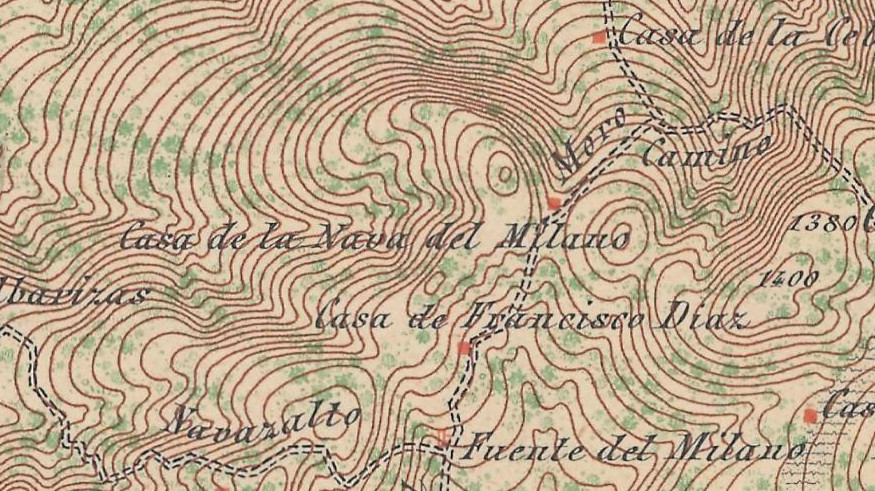 Casa de la
Moro
Camino
Casa de la Nava del Milano
1380
1400
Casa de Francisco Diaz
Navazalto
Fuente del Milano